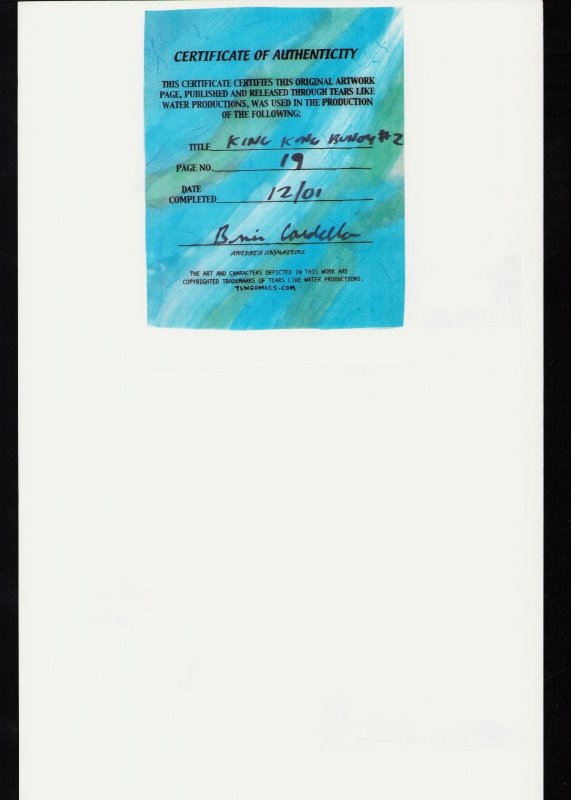 CERTIFICATE OF AUTHENTICITY
THIS CERTIFICATE CERTIFIES THIS ORIGINAL ARTWORK
PAGE, PUBLISHED AND RELEASED THROUGH TEARS LIKE
WATER PRODUCTIONS, WAS USED IN THE PRODUCTION
OF THE FOLLOWING:
TITLE KING KONG BUNDY #2
PAGE NO. 19
DATE
COMPLETED 12/01
ARTIST'S SIGNATURE
THE ART AND CHARACTERS DEPICTED IN THIS WORK ARE
COPYRIGHTED TRADEMARKS OF TEARS LIKE WATER PRODUCTIONS.
TLWCOMICS.COM